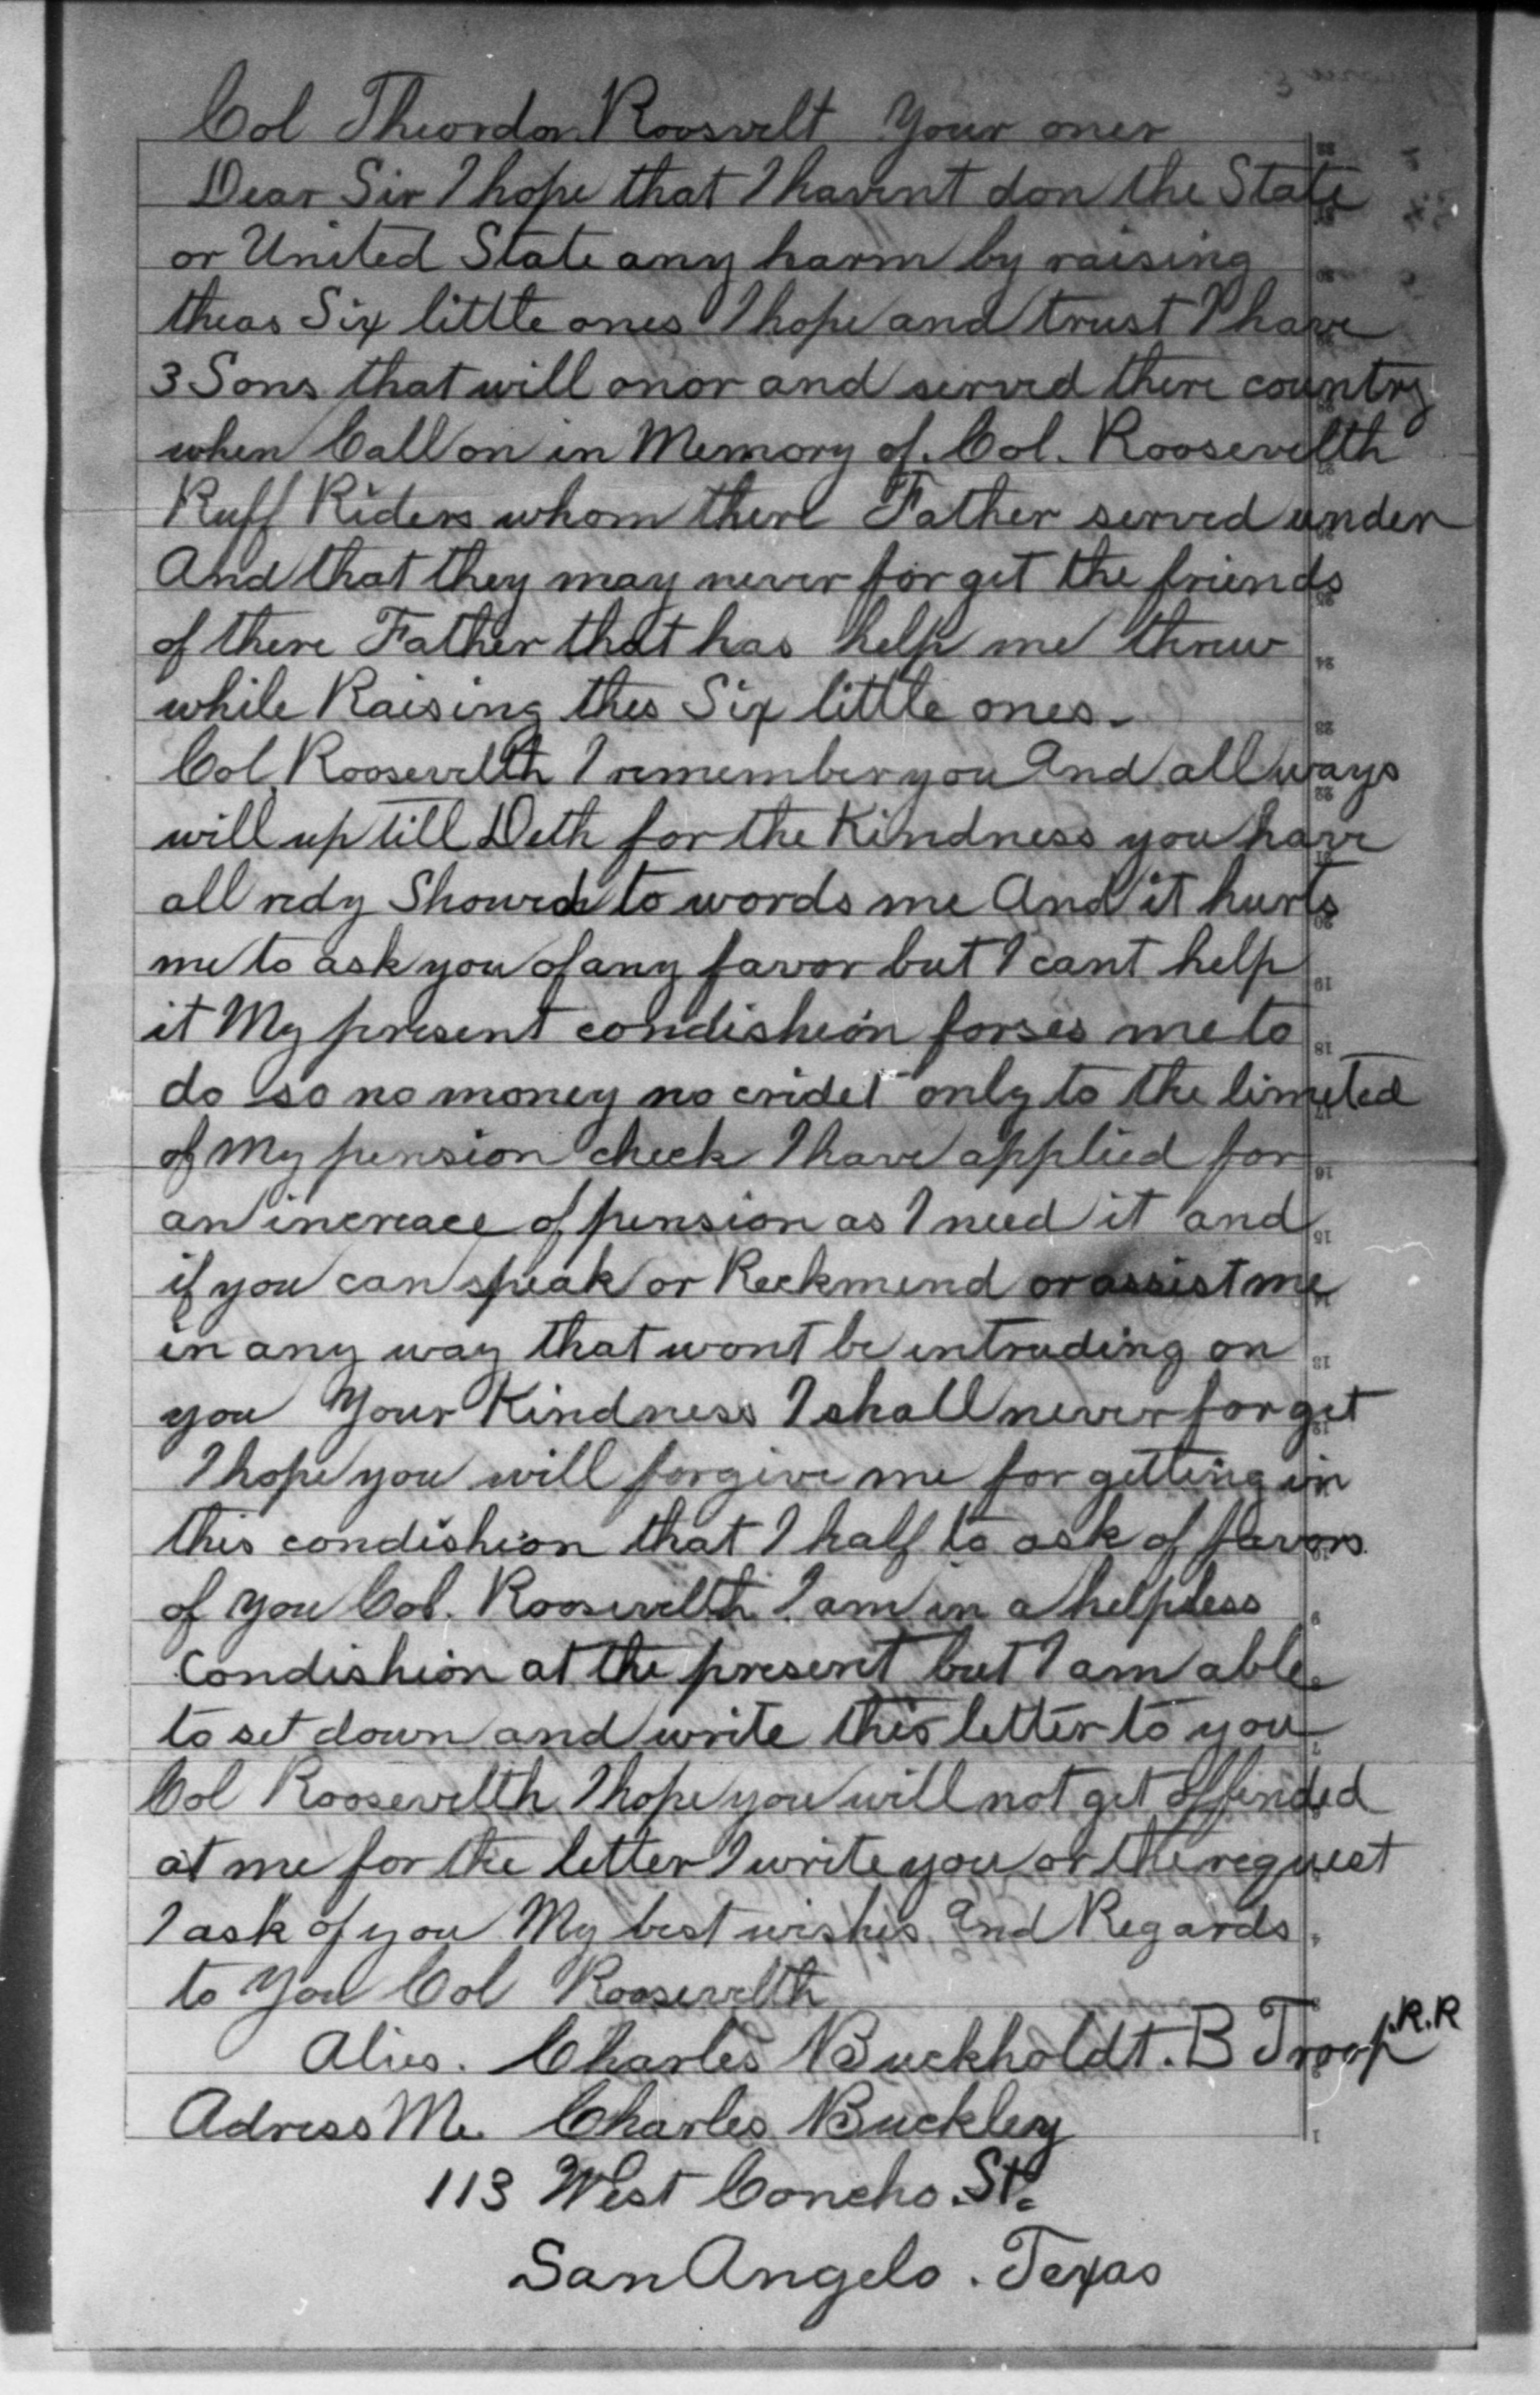 Col Theordor Roosvelt Your oner
Dear Sir I hope that I havent don the State
or United State any harm by raising
theas Six little ones I hope and trust I have
3 Sons that will onor and served there country
when Call on in Memory of. Col. Roosevelth
Ruff Riders whom there Father served under
And that they may never for get the friends
of there Father that has help me threw
while Raising thes Six little ones.
Col. Roosevelth I remember you And all ways
will up till Deth for the Kindness you have
all redy Showed to words me And it hurts
me to ask you of any favor but I cant help
it My present condishion forses me to
do so no money no cridet only to the limeted
of My pension check I have applied for
an increace of pension as I need it and
if you can speak or Reckmend or assist me
in any way that wont be intruding on
you Your Kindness I shall never for get
I hope you will forgive me for getting in
this condishion that I half to ask of favors
of you Col. Roosevelth I am in a helpless
Condishion at the present but I am able
to set down and write this letter to you
Col Roosevelth I hope you will not get offended
at me for the letter I write you or the request
I ask of you My best wishes And Regards
to You Col Roosevelth
Alies. Charles Buckholdt. B Troop R.R
Adress Me Charles Buckley
113 West Concho. St.
San Angelo. Texas